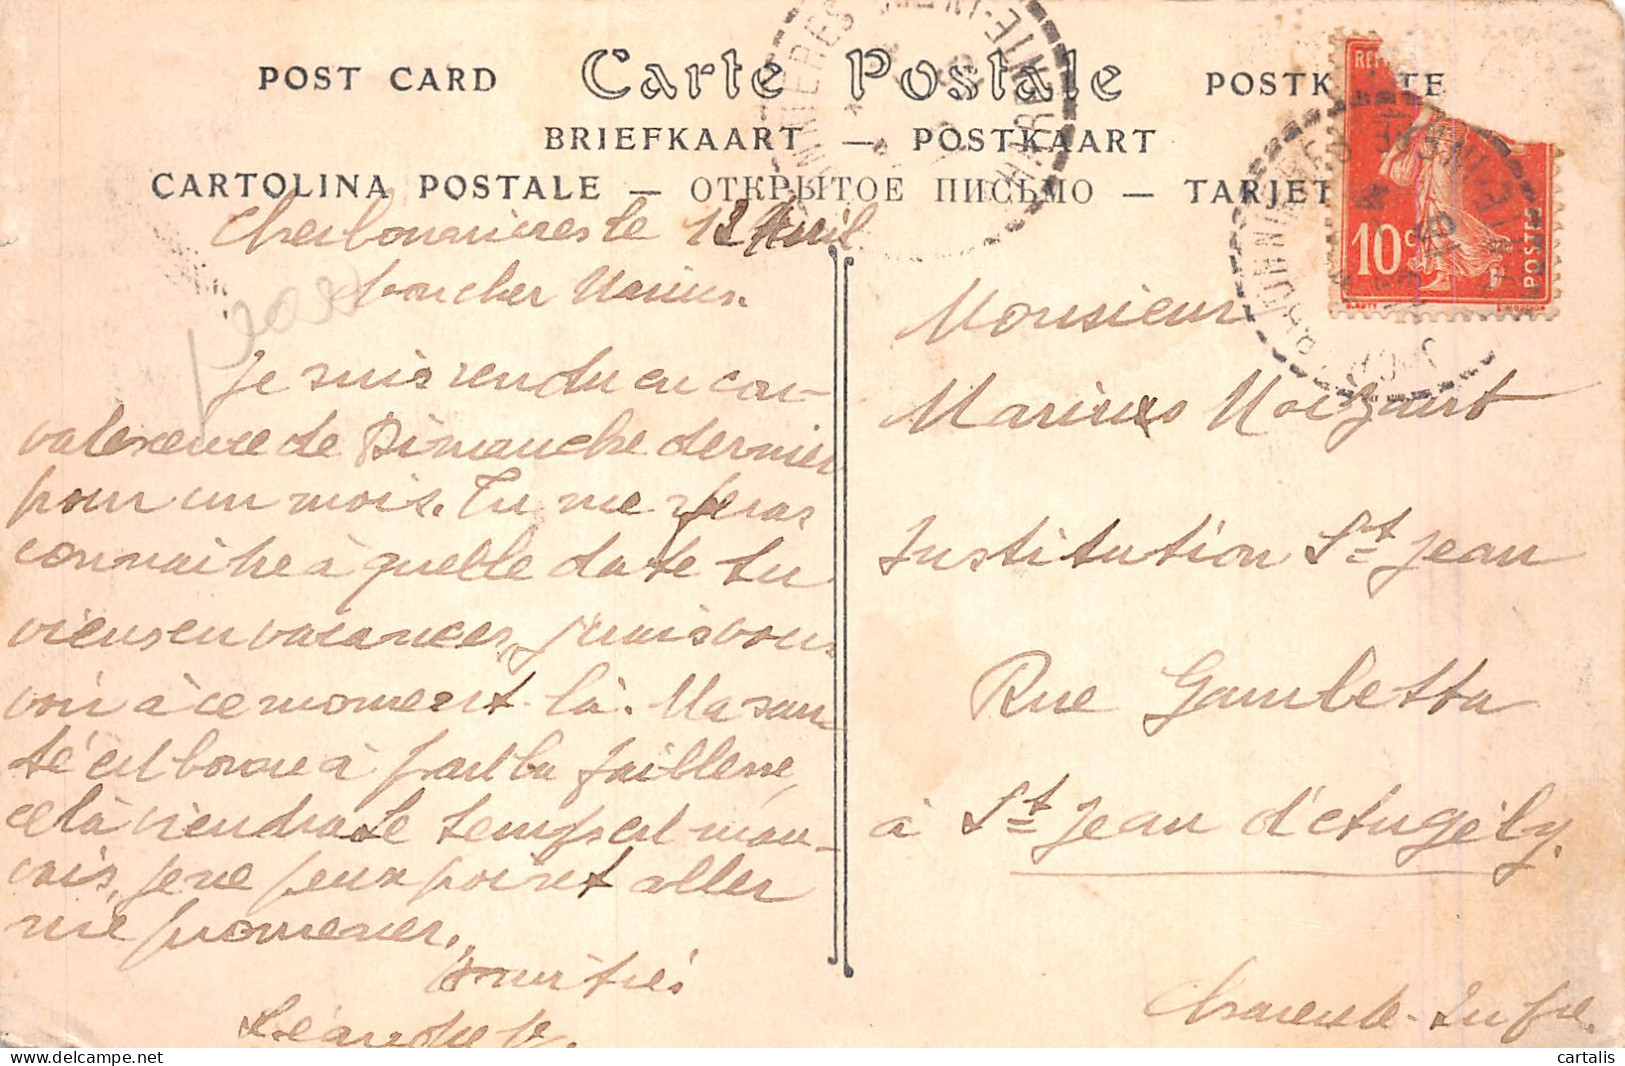 POST CARD Carte Postale POSTK TE
BRIEFKAART — POSTKAART
CARTOLINA POSTALE — ОТКРЫТОЕ ПИСЬМО — TARJET
REP
10c
POSTES
Cherbonnières le 12 Avril
p
boucher Marius.
Je suis rendu en con-
valescence de Dimanche dernier
pour un mois. Tu me feras
connaitre à quelle date tu
viens en vacances, j'irais vous
voir à ce moment là. Ma san
té est bonne à part la faiblesse,
celà viendra Le temps est mau-
vais, je ne peux point aller
me promener.
Amitiés
Léandre
Monsieur
Marius
Institution St Jean
Rue Gambetta
à St Jean d'Angély.
Charente-Infre.
cartalis